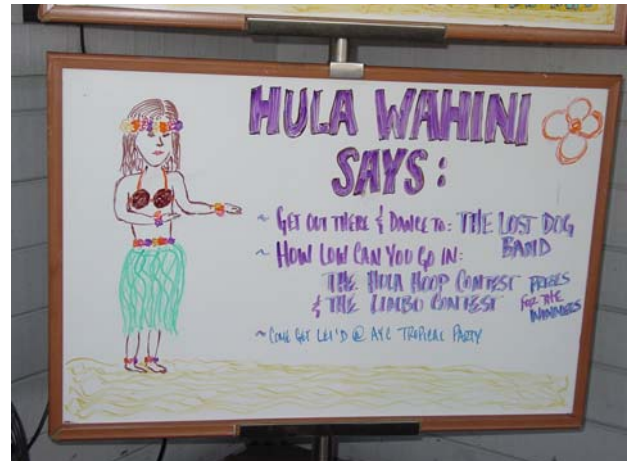 HULA WAHINI
SAYS:
~ GET OUT THERE & DANCE TO: THE LOST DOG
BAND
~ HOW LOW CAN YOU GO IN:
THE HULA HOOP CONTEST PRIZES
& THE LIMBO CONTEST FOR THE
WINNERS
~ COME GET LEI'D @ AYC TROPICAL PARTY